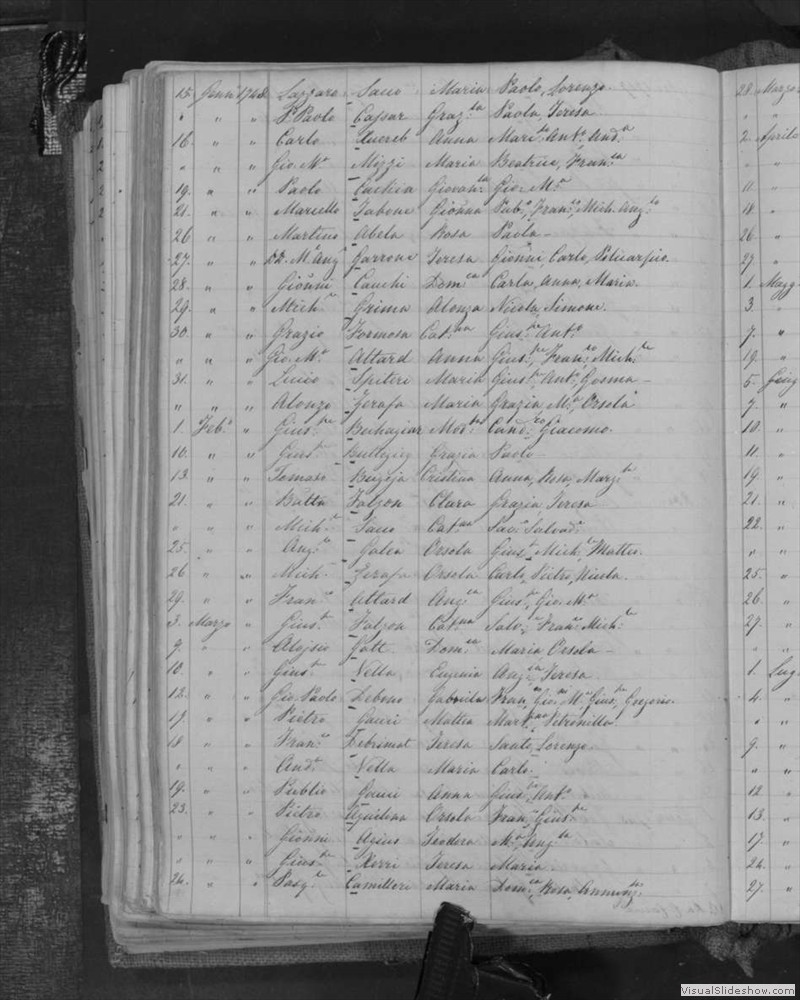 15. Genn. 1748. Lazzaro Sacco Maria Paolo, Lorenzo.
" " " P. Paolo Caspar Graz.ia Paola, Teresa
16. " " Carlo Xuereb Anna Mari.a Ant.o And.a
" " " Gio. M.a Mizzi Maria Beatrice, Fran.ca
19. " " Paolo Giovan.a Gio. M.a
21. " " Marcello Tabone Gionna Pub.o, Fran.o, Mich. Ang.lo
26 " " Martino Abela Rosa Paola -
27. " " M. Ang. Garrone Teresa Gionni, Carlo, Policarpio.
28. " " Gionni Cauchi Dom.ca Carlo, Anna, Maria.
29. " " Mich.e Grima Alonza Nicola, Simone.
30. " " Grazio Formosa Cat.na Gius.pe Ant.o
" " " Gio. M.a Attard Anna Gius.pe, Fran.co, Mich.le
31. " " Lucio Spiteri Maria Gius.e Ant.o, Cosma -
" " " Alonzo Zerafa Maria Grazia, M.a Orsola
1. Feb.o " Gius.pe Buhagiar Mod.ta Cand.ro Giacomo.
10. " " Gius.e Buttigieg Grazia Paolo -
13. " " Tomaso Bugeja Cristina Anna, Rosa, Marg.ta
21. " " Batta Falzon Clara Grazia, Teresa
" " " Mich.e Cat.na Sav.o Salvad.e
25. " " Ang.lo Galea Orsola Gius.e, Mich.le, Matteo.
26 " " Mich.e Zerafa Orsola Carlo, Pietro, Nicola.
29. " " Fran.o Attard Ang.ca Gius.pe, Gio. M.a
3. Marzo " Gius.e Falzon Cat.na Salv.e, Fran.o, Mich.le
9. " " Alojsio Gatt Dom.ca Maria Orsola -
10. " " Gius.e Vella Eugenia Ang.ca, Teresa
12. " " Gio. Paolo Debono Gabriela Fran.co, Gio. M.a, Gius.pe, Gregorio.
17. " " Pietro Gauci Mattea Mart.no Petronilla
18 " " Fran.o Debrimat Teresa Santo, Lorenzo.
" " " And.a Vella Maria Carlo -
19. " " Publio Gauci Anna Gius.e Ant.o
23. " " Pietro Aquilina Orsola Fran.o, Gius.pe
" " " Gionni Agius Teodora M. Ang.lo
" " " Gius.pe Xerri Teresa Maria.
24. " " Pasq.le Camilleri Maria Dom.ca, Rosa, Annunz.ta
28. Marzo
" "
2. Aprile
" "
11. "
18. "
26 "
27 "
1. Magg
3. "
7. "
19. "
5. Giug
7. "
10. "
11. "
19. "
21. "
22. "
" "
25. "
26. "
29. "
" "
1. Lug
4. "
" "
9. "
" "
12 "
13. "
17. "
24. "
27. "
VisualSlideshow.com